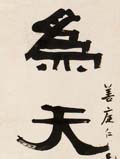 為天
善庭仁